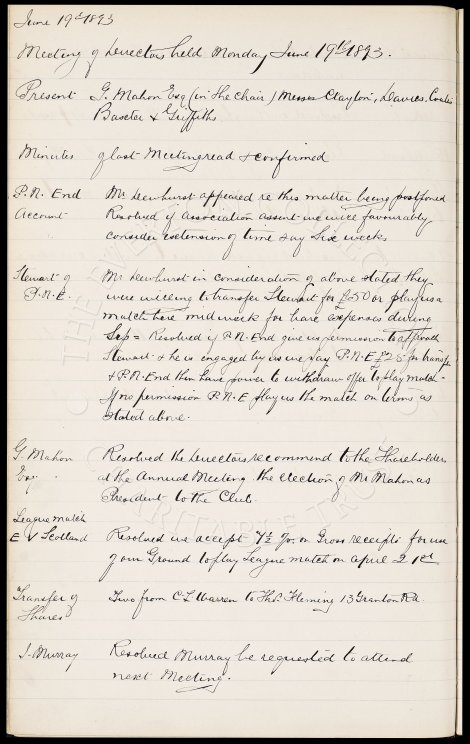 June 19th 1893
Meeting of Directors held Monday June 19th 1893.
Present G. Mahon Esq (in the chair) Messrs Clayton, Davies, Coates
Baxter & Griffiths
Minutes of last Meeting read & confirmed
P.N. End Mr Dewhurst appeared re this matter being postponed
Account Resolved if Association assent we will favourably
consider extension of time say six weeks
Stewart of Mr Dewhurst in consideration of above stated they
P.N.E. were willing to transfer Stewart for £50 or play us a
match here mid week for bare expenses during
Sep = Resolved if P.N. End give us permission to approach
Stewart & he is engaged by us we pay P.N.E £25 for transfer
& P.N. End then have power to withdraw offer to play match -
If no permission P.N.E play us the match on terms as
stated above.
G. Mahon Resolved the Directors recommend to the Shareholders
Esq. at the Annual Meeting the election of Mr Mahon as
President to the Club.
League match
E V Scotland Resolved we accept 7½ % on Gross receipts for use
of our Ground to play League match on April 21st
Transfer of Two from C L Warren to Thos. Fleming 13 Granton Rd.
Shares
J. Murray Resolved Murray be requested to attend
next Meeting.